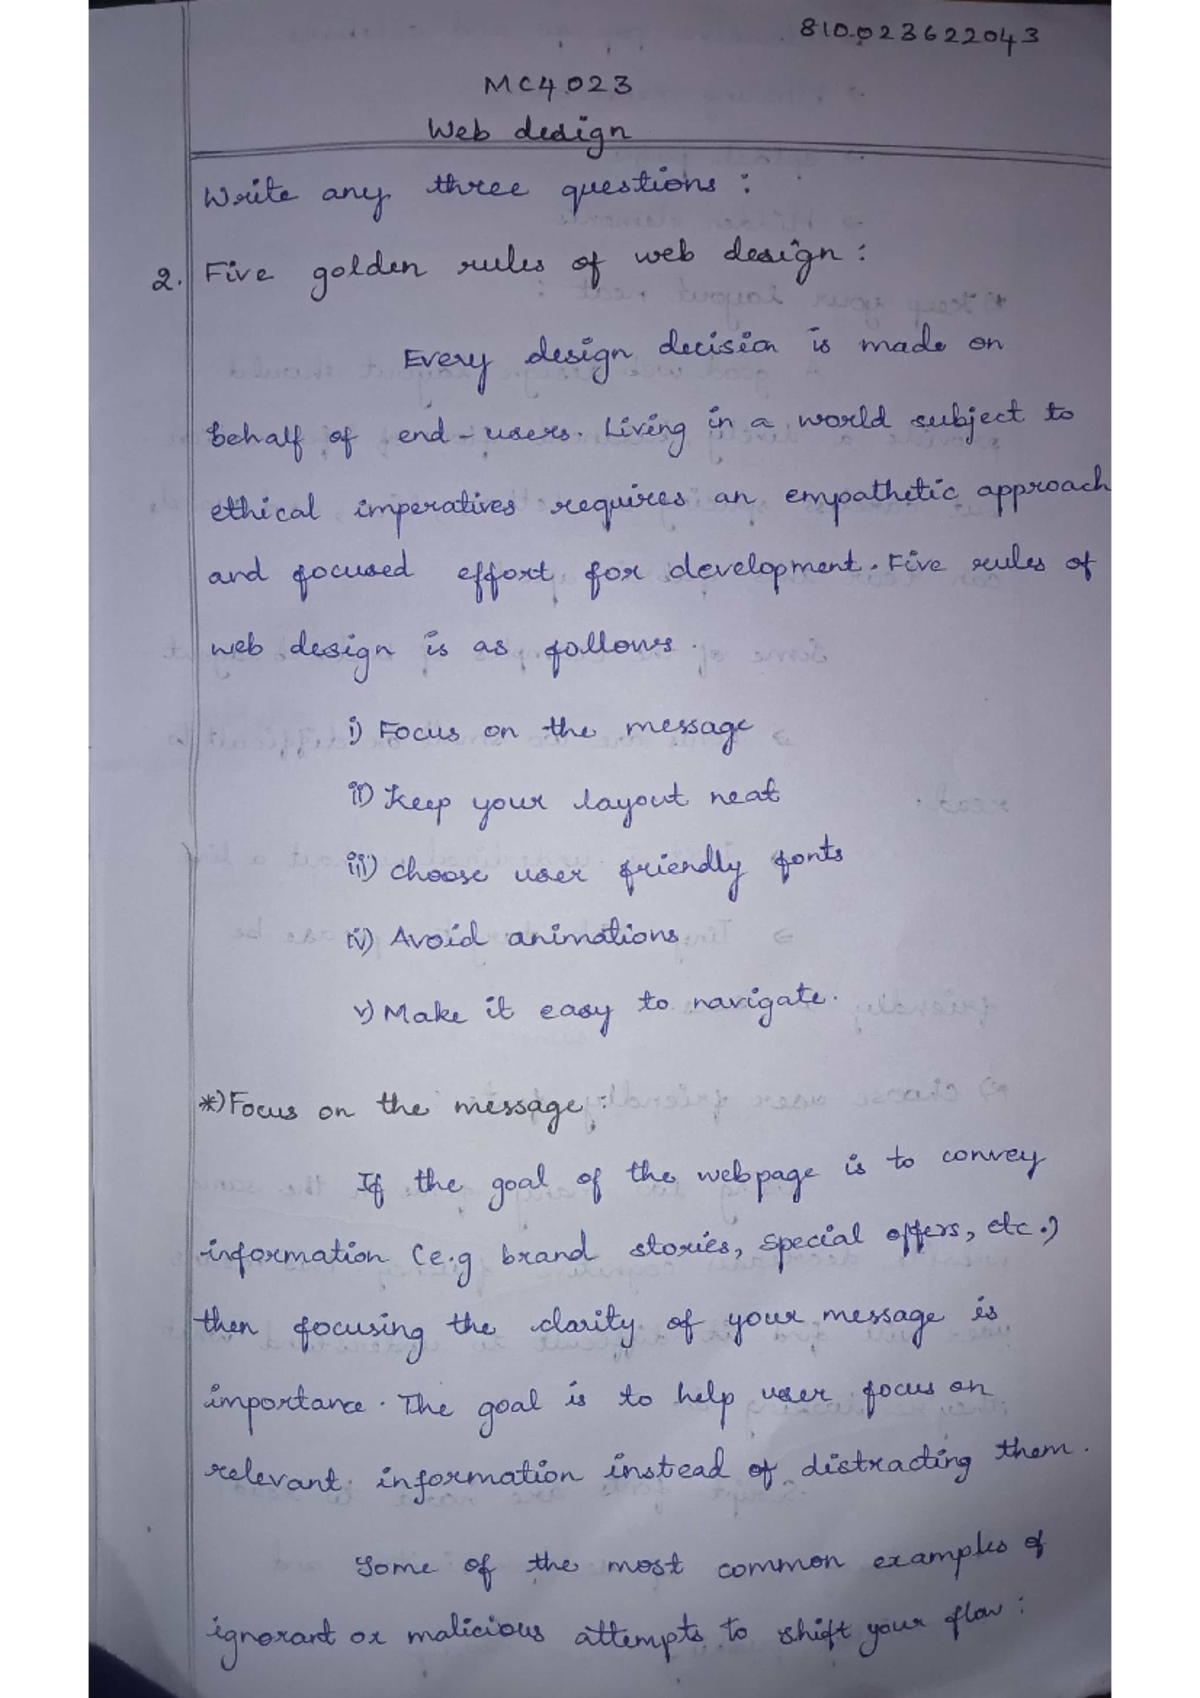 810023622043
MC4023
Web dedign
Write any three questions :
2. Five golden rules of web design :
Every design decision is made on
behalf of end-users. Living in a world subject to
ethical imperatives requires an empathetic approach
and focused effort for development. Five rules of
web design is as follows.
i) Focus on the message
ii) Keep your layout neat
iii) choose user friendly fonts
iv) Avoid animations
v) Make it easy to navigate.
*) Focus on the message :
If the goal of the webpage is to convey
information (e.g brand stories, special offers, etc.)
then focusing the clarity of your message is
importance. The goal is to help user focus on
relevant information instead of distracting them.
Some of the most common examples of
ignorant or malicious attempts to shift your flow :